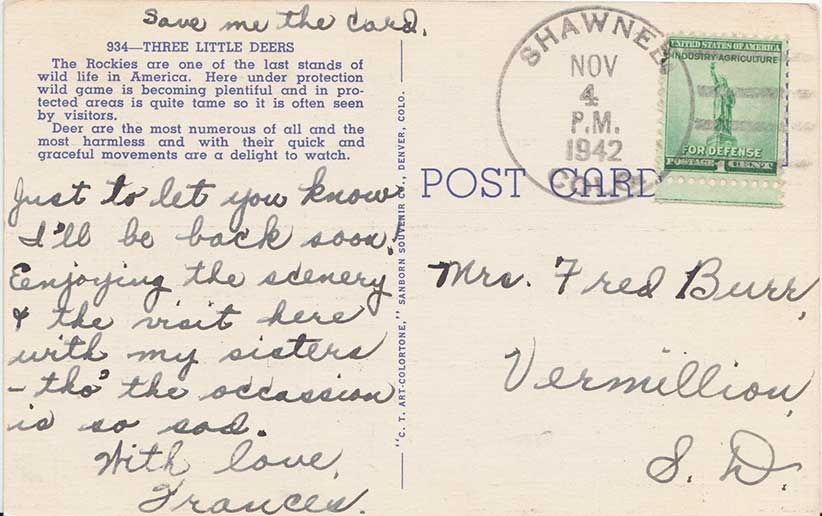 Save me the card.
934—THREE LITTLE DEERS
The Rockies are one of the last stands of
wild life in America. Here under protection
wild game is becoming plentiful and in pro-
tected areas is quite tame so it is often seen
by visitors.
Deer are the most numerous of all and the
most harmless and with their quick and
graceful movements are a delight to watch.
Just to let you know
I'll be back soon!
Eenjoying the scenery
& the visit here
with my sisters
- tho' the occassion
is so sad.
With love,
Frances.
"C. T. ART-COLORTONE," SANBORN SOUVENIR CO., DENVER, COLO.
POST CARD
SHAWNEE
NOV
4
P.M.
1942
COLO.
UNITED STATES OF AMERICA
INDUSTRY AGRICULTURE
FOR DEFENSE
POSTAGE 1 CENT
Mrs. Fred Burr,
Vermillion,
S. D.